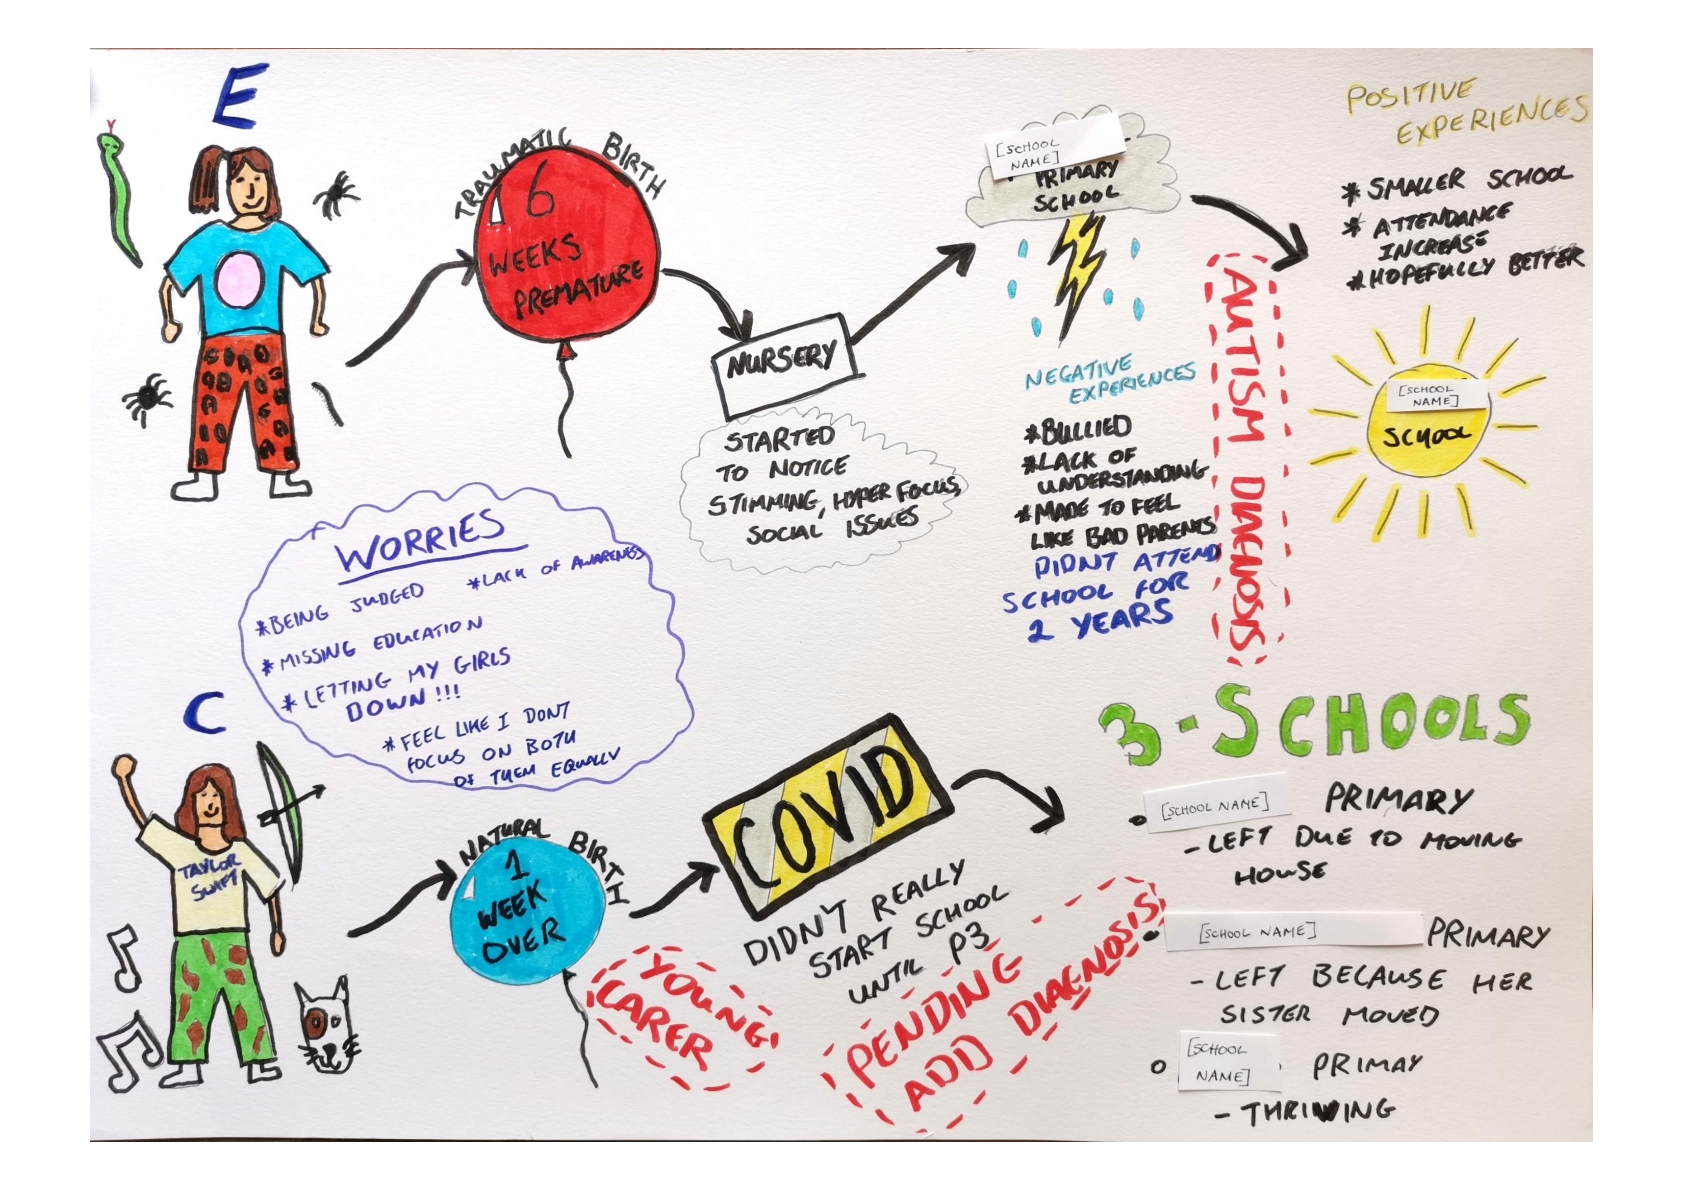 E
TRAUMATIC BIRTH
6
WEEKS
PREMATURE
NURSERY
STARTED
TO NOTICE
STIMMING, HYPER FOCUS,
SOCIAL ISSUES
[SCHOOL
NAME]
PRIMARY
SCHOOL
NEGATIVE
EXPERIENCES
*BULLIED
*LACK OF
UNDERSTANDING
*MADE TO FEEL
LIKE BAD PARENTS
DIDNT ATTEND
SCHOOL FOR
2 YEARS
AUTISM DIAGNOSIS
POSITIVE
EXPERIENCES
* SMALLER SCHOOL
* ATTENDANCE
INCREASE
*HOPEFULLY BETTER
[SCHOOL
NAME]
SCHOOL
WORRIES
*BEING JUDGED
*LACK OF AWARENESS
* MISSING EDUCATION
* LETTING MY GIRLS
DOWN!!!
*FEEL LIKE I DONT
FOCUS ON BOTH
OF THEM EQUALLY
C
TAYLOR
SWIFT
NATURAL BIRTH
1
WEEK
OVER
YOUNG
CARER
COVID
DIDN'T REALLY
START SCHOOL
UNTIL P3
PENDING
ADD DIAGNOSIS
3-SCHOOLS
[SCHOOL NAME] PRIMARY
- LEFT DUE TO MOVING
HOUSE
[SCHOOL NAME] PRIMARY
- LEFT BECAUSE HER
SISTER MOVED
[SCHOOL
NAME] PRIMAY
- THRIVING